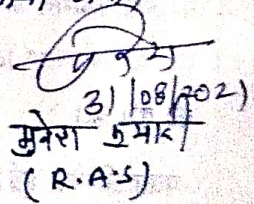 31/08/2021
मुकेश कुमार
(R.A.S)